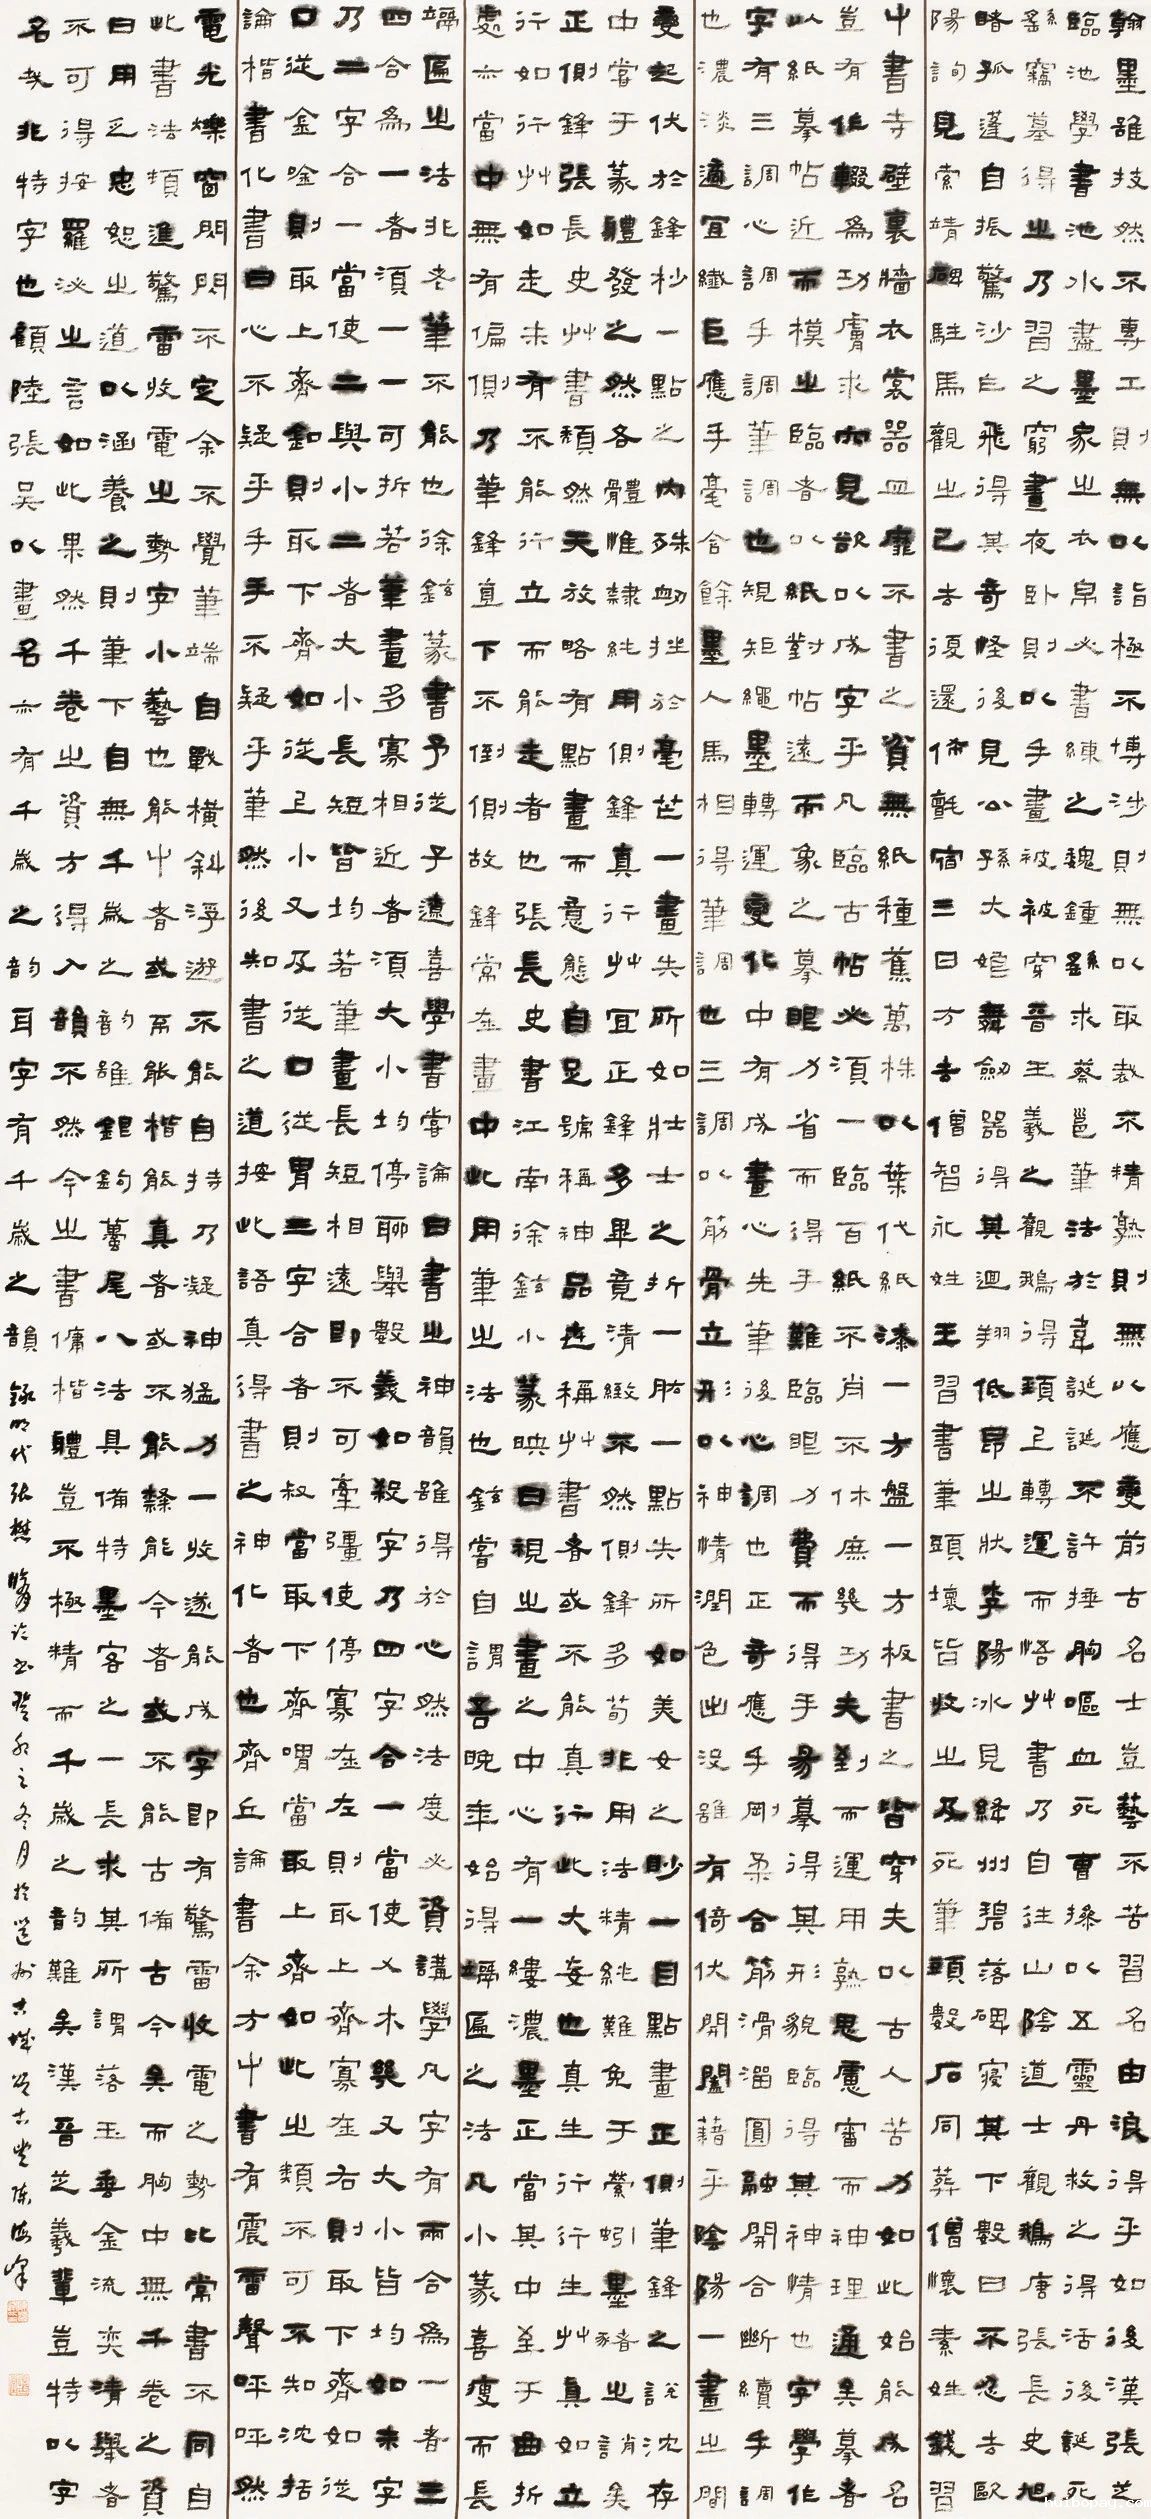 翰墨雖技然不專工則無以詣極不博涉則無以取裁不精熟則無以應變前古名士豈藝不苦習名由浪得乎如後漢張芝
臨池學書池水盡墨家之衣帛必書練之魏鍾繇求蔡邕筆法於韋誕誕不許捶胸嘔血死曹操以五靈丹救之得活後誕死
繇竊墓得之乃習之窮晝夜臥則以手畫被被穿晉王羲之觀鵝得頸上轉運而悟艸書乃自往山陰道士觀鵝唐張長史旭
睹孤蓬自振驚沙白飛得其奇怪後見公孫大娘舞劍器得其迴翔低昂之狀李陽冰見絳州碧落碑寢其下數日不忍去歐
陽詢見索靖碑駐馬觀之已去復還佈氈宿三日方去僧智永姓王習書筆頭壞皆收之及死筆頭數石同葬僧懷素姓錢習
艸書寺壁裏牆衣裳器皿靡不書之資無紙種蕉萬株以葉代紙漆一方盤一方板書之皆穿夫以古人苦力如此始能成名
豈有作輟爲功膚求而見欲以成字乎凡臨古帖必須一臨百紙不肖不休庶幾功夫到而運用熟思慮審而神理通矣摹者
以紙摹帖近而模之臨者以紙對帖遠而象之摹眼力省而得手難臨眼力費而得手易摹得其形貌臨得其神情也字學作
字有三調心調手調筆調也規矩繩墨轉運變化中有成畫心先筆後心調也正奇應手剛柔合筋滑溜圓融開合斷續手調
也濃淡適宜纖巨應手毫含餘墨人馬相得筆調也三調以筋骨立形以神情潤色出沒雖有倚伏開闔藉乎陰陽一畫之間
變起伏於鋒杪一點之內殊衄挫於毫芒一畫失所如壯士之折一肱一點失所如美女之眇一目點畫正側筆鋒之說沈存
中嘗于篆體發之然各體惟隸純用側鋒真行艸宜正鋒多畢竟清緻不然側鋒多苟非用法精純難免于縈蚓墨豬之誚矣
正側鋒張長史艸書頹然天放略有點畫而意態自足號稱神品世稱艸書者或不能真行此大妄也真生行行生艸真如立
行如行艸如走未有不能行立而能走者也張長史書江南徐鉉小篆映日視之畫之中心有一縷濃墨正當其中至于曲折
處亦當中無有偏側乃筆鋒直下不倒側故鋒常在畫中此用筆之法也鉉嘗自謂吾晚年始得竵匾之法凡小篆喜瘦而長
竵匾之法非老筆不能也徐鉉篆書予從子遼喜學書嘗論曰書之神韻雖得於心然法度必資講學凡字有兩合爲一者三
四合爲一者須一一可拆若筆畫多寡相近者須大小均停聊舉數義如殺字乃四字合一當使乂木几又大小皆均如未字
乃二字合一當使二與小二者大小長短皆均若筆畫長短相遠即不可牽彊使停寡在左則取上齊寡在右則取下齊如從
口從金唫則取上齊釦則取下齊如從上小又及從口從胃三字合者則叔當取下齊喟當取上齊如此之類不可不知沈括
論楷書化書曰心不疑乎手手不疑乎筆然後知書之道按此語真得書之神化者也齊丘論書余方艸書有震雷聲呯呯然
電光爍窗閃閃不定余不覺筆端自戰橫斜浮遊不能自持乃凝神猛力一收遂能成字即有驚雷收電之勢比常書不同自
此書法頓進驚雷收電之勢字小藝也能艸者或不能楷能真者或不能隸能今者或不能古備古今矣而胸中無千卷之資
日用乏忠恕之道以涵養之則筆下自無千歲之韵雖銀鉤蠆尾八法具備特墨客之一長求其所謂落玉垂金流奕清舉者
不可得按羅泌之言如此果然千卷之資方得入韻不然今之書傭楷體豈不極精而千歲之韵難矣漢晉芝羲輩豈特以字
名哉非特字也顧陸張吳以畫名亦有千歲之韵耳字有千歲之韻 錄明代張懋修論書癸卯之冬月於邕州古城 陳海峰